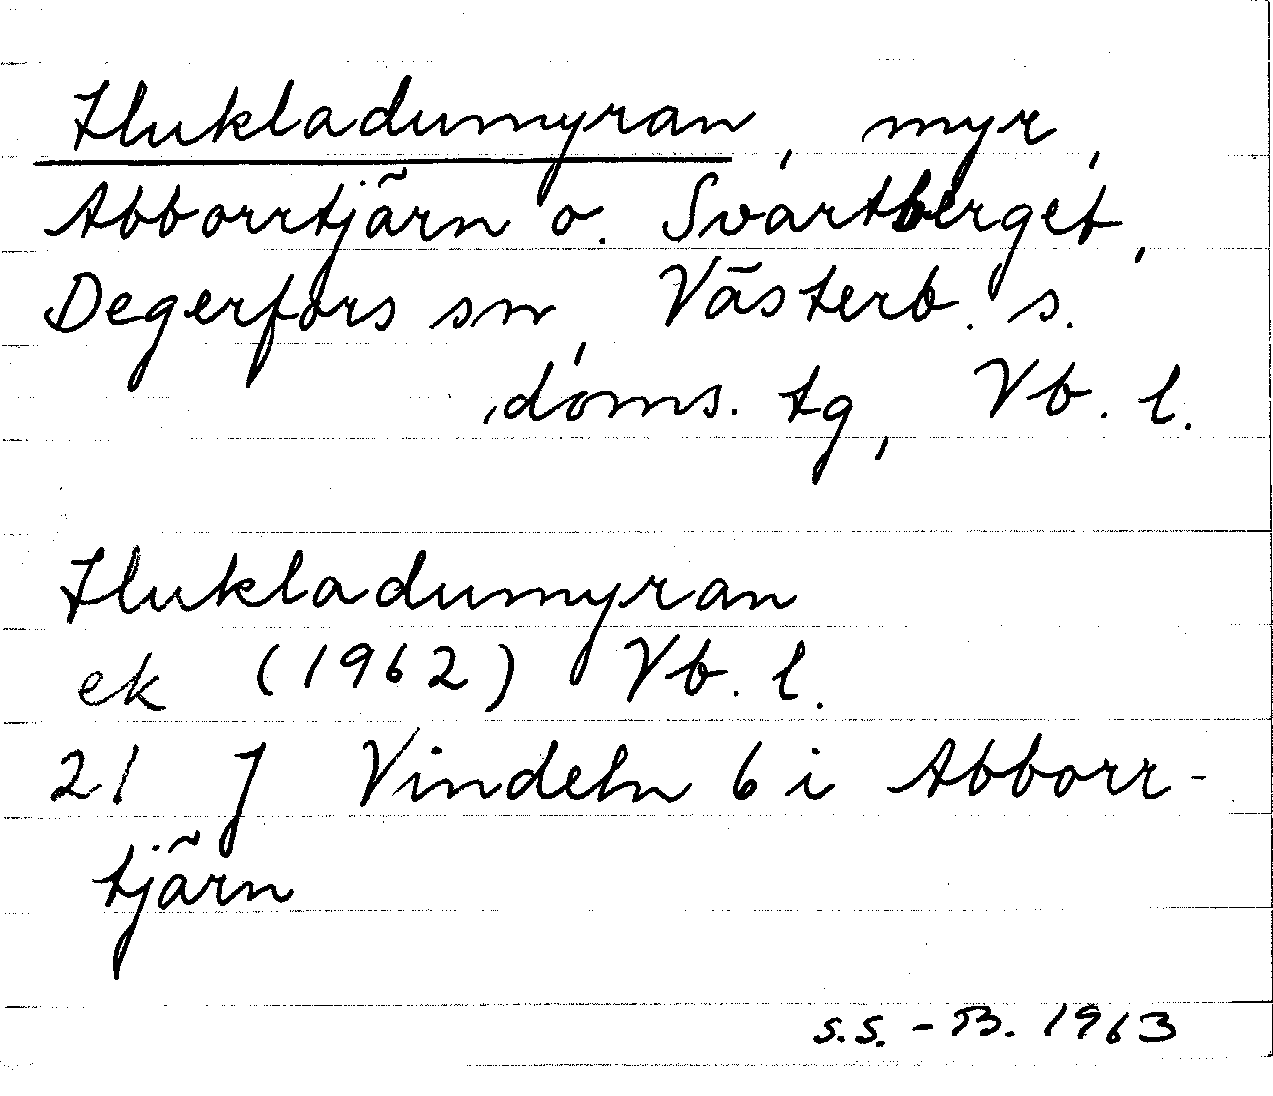 Flukladumyran, myr,
Abborrtjärn o. Svartberget,
Degerfors sn, Västerb. s.
doms. tg, Vb. l.
Flukladumyran
ek (1962) Vb. l.
21 J Vindeln 6 i Abborr-
tjärn
S.S.-B. 1963